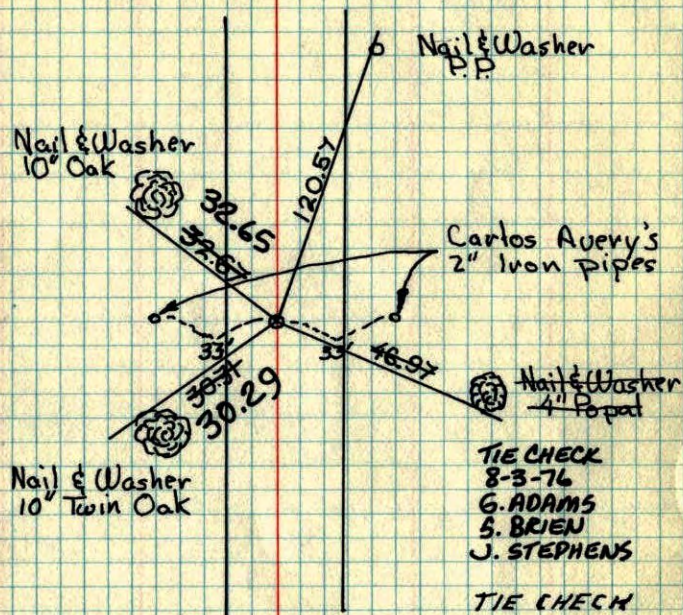 Nail & Washer
P.P.
Nail & Washer
10" Oak
32.65
32.67
120.57
Carlos Avery's
2" Iron pipes
33'
33'
46.97
30.31
30.29
Nail & Washer
4" Popal
Nail & Washer
10" Twin Oak
TIE CHECK
8-3-76
G. ADAMS
S. BRIEN
J. STEPHENS
TIE CHECK